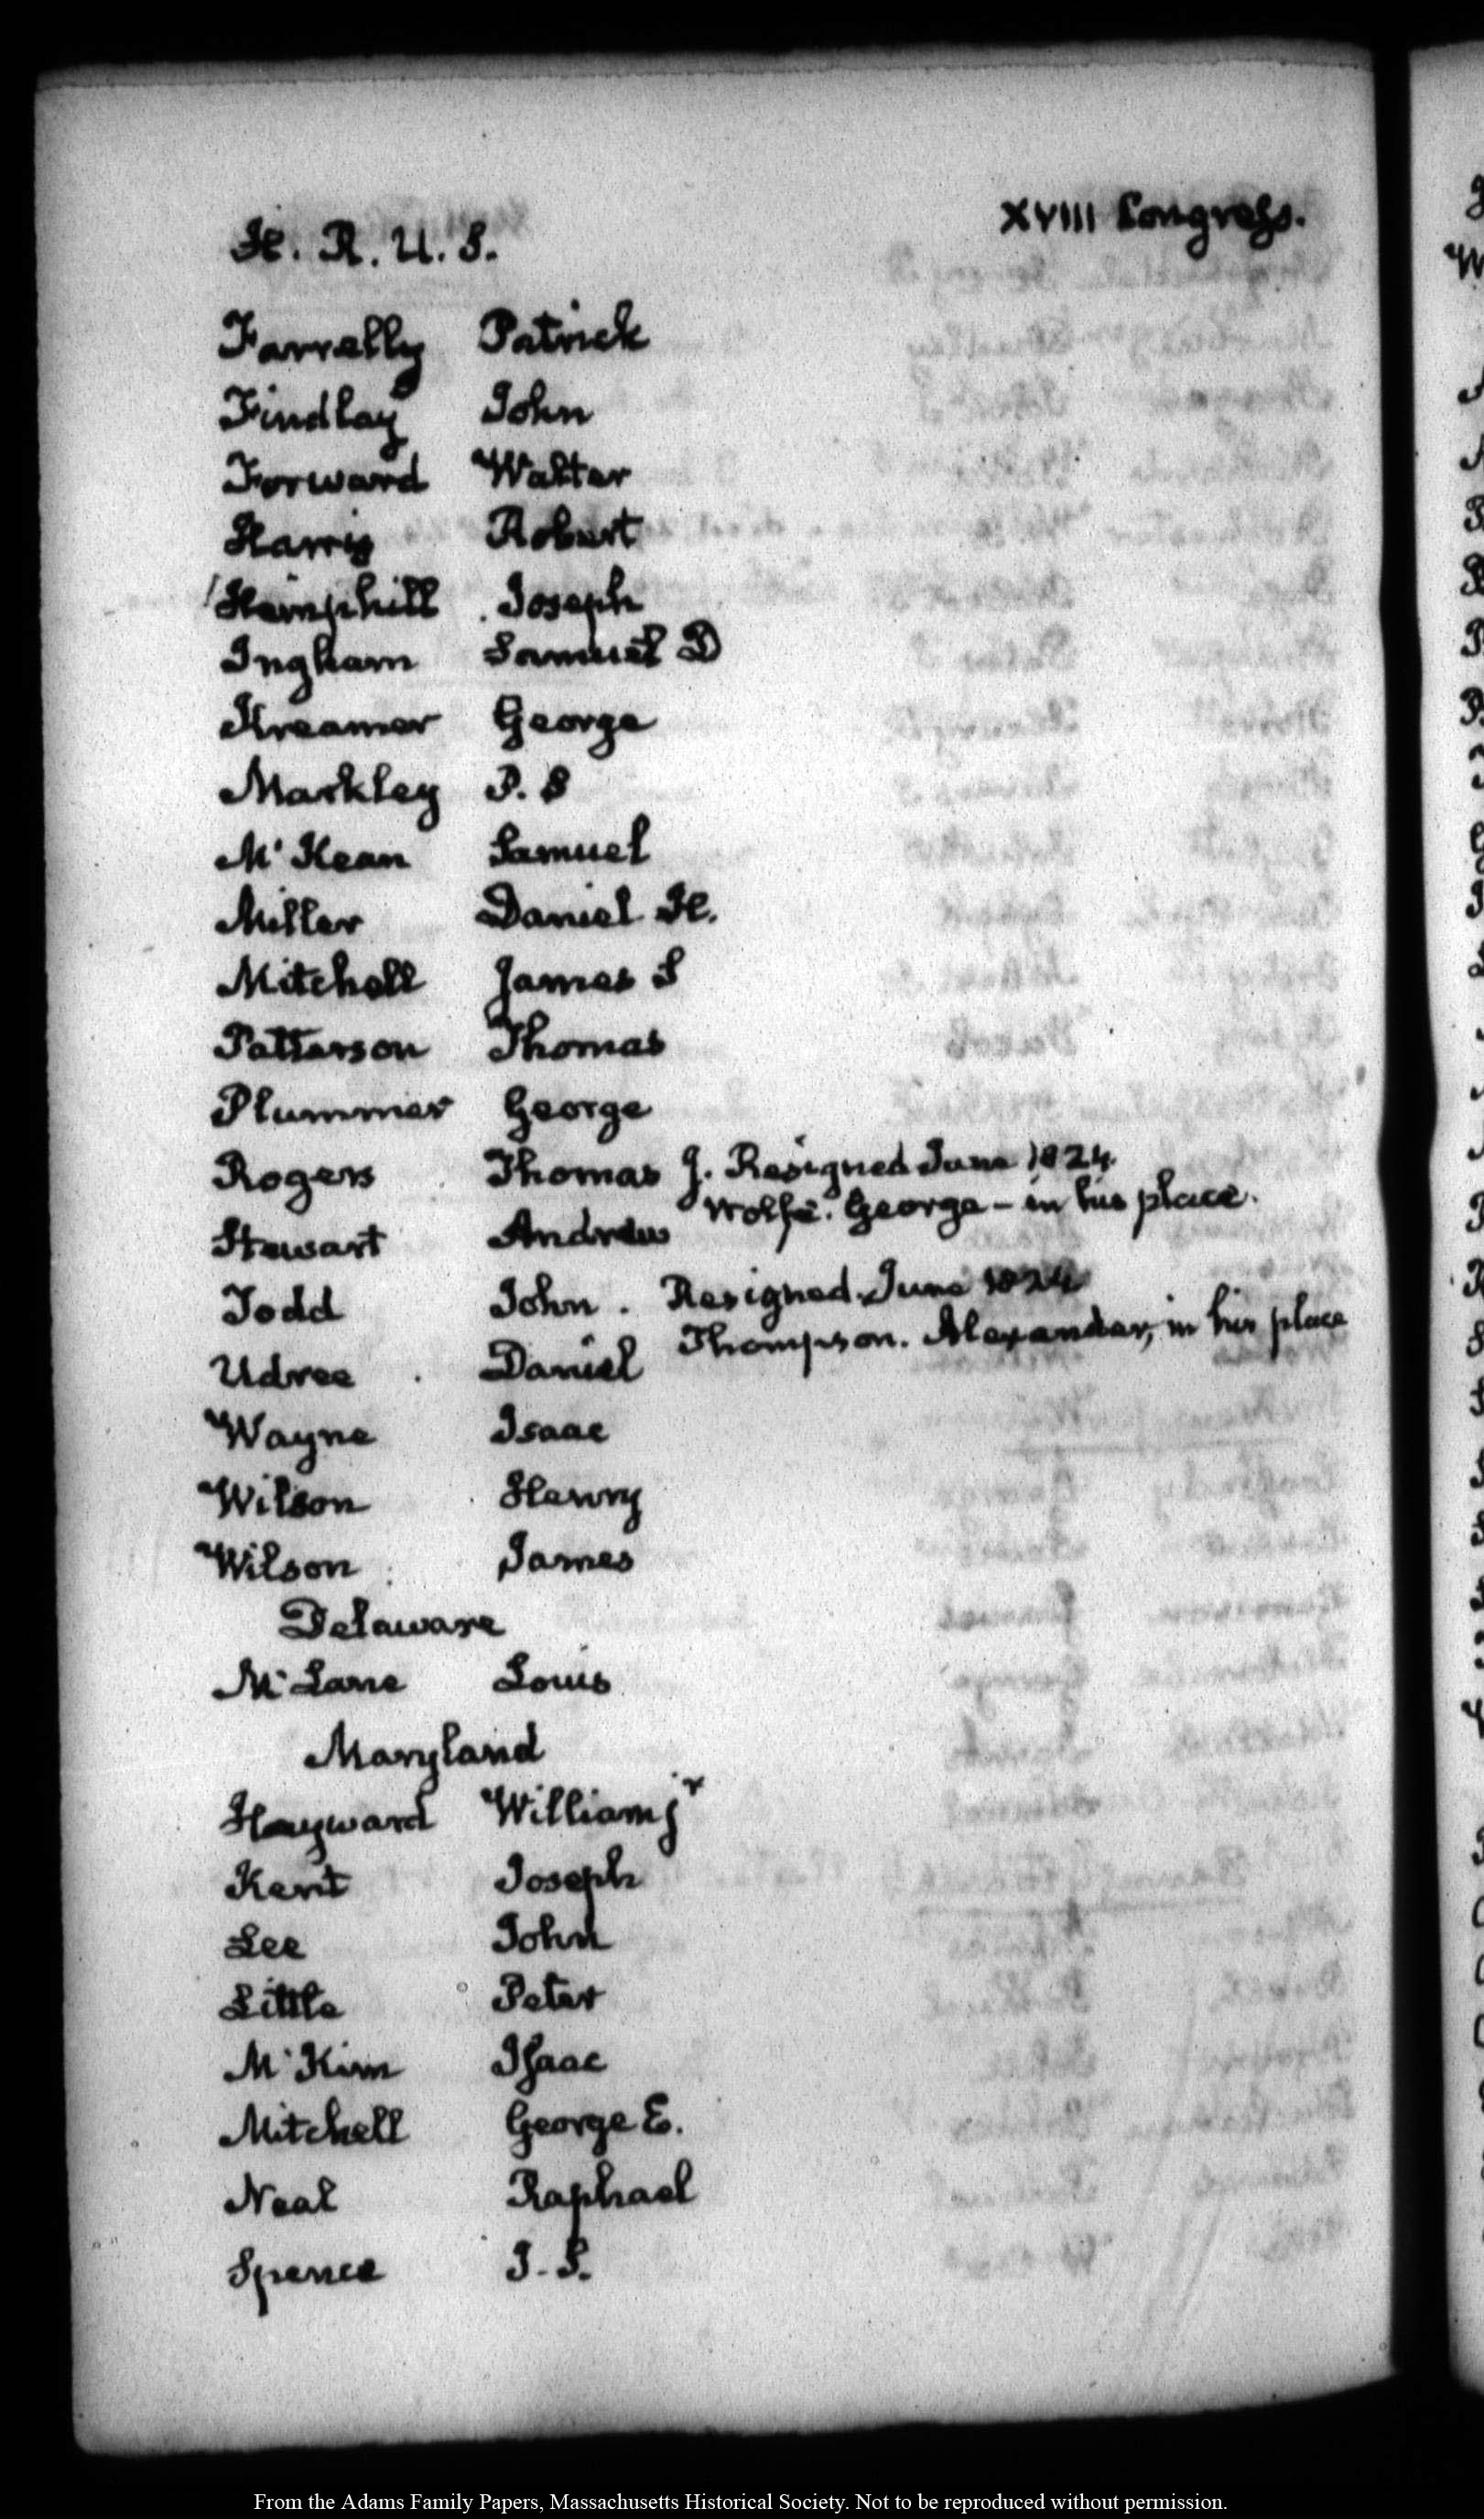 H. R. U. S. XVIII Congress.
Farrelly Patrick
Findlay John
Forward Walter
Harris Robert
Hemphill Joseph
Ingham Samuel D
Kreamer George
Markley P. S
Mc Kean Samuel
Miller Daniel H.
Mitchell James S
Patterson Thomas
Plummer George
Rogers Thomas J. Resigned June 1824.
Wolfe. George – in his place.
Stewart Andrew
Todd John. Resigned June 1824
Thompson. Alexander, in his place
Udree Daniel
Wayne Isaac
Wilson Henry
Wilson James
Delaware
Mc Lane Louis
Maryland
Hayward William jr
Kent Joseph
Lee John
Little Peter
Mc Kim Isaac
Mitchell George E.
Neal Raphael
Spence J. S.
From the Adams Family Papers, Massachusetts Historical Society. Not to be reproduced without permission.